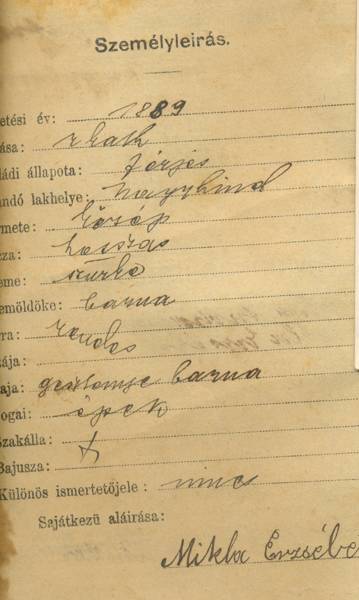 Személyleirás.
etési év: 1889
ása: r kath
ádi állapota: férjes
andó lakhelye: Nagyhind
rmete: közép
cza: hosszas
eme: szürke
emöldöke: barna
rra: rendes
zája:
aja: gesztenye barna
ogai: épek
Szakálla:
Bajusza:
Különös ismertetőjele: nincs
Sajátkezü aláirása:
Mikla Erzsébe